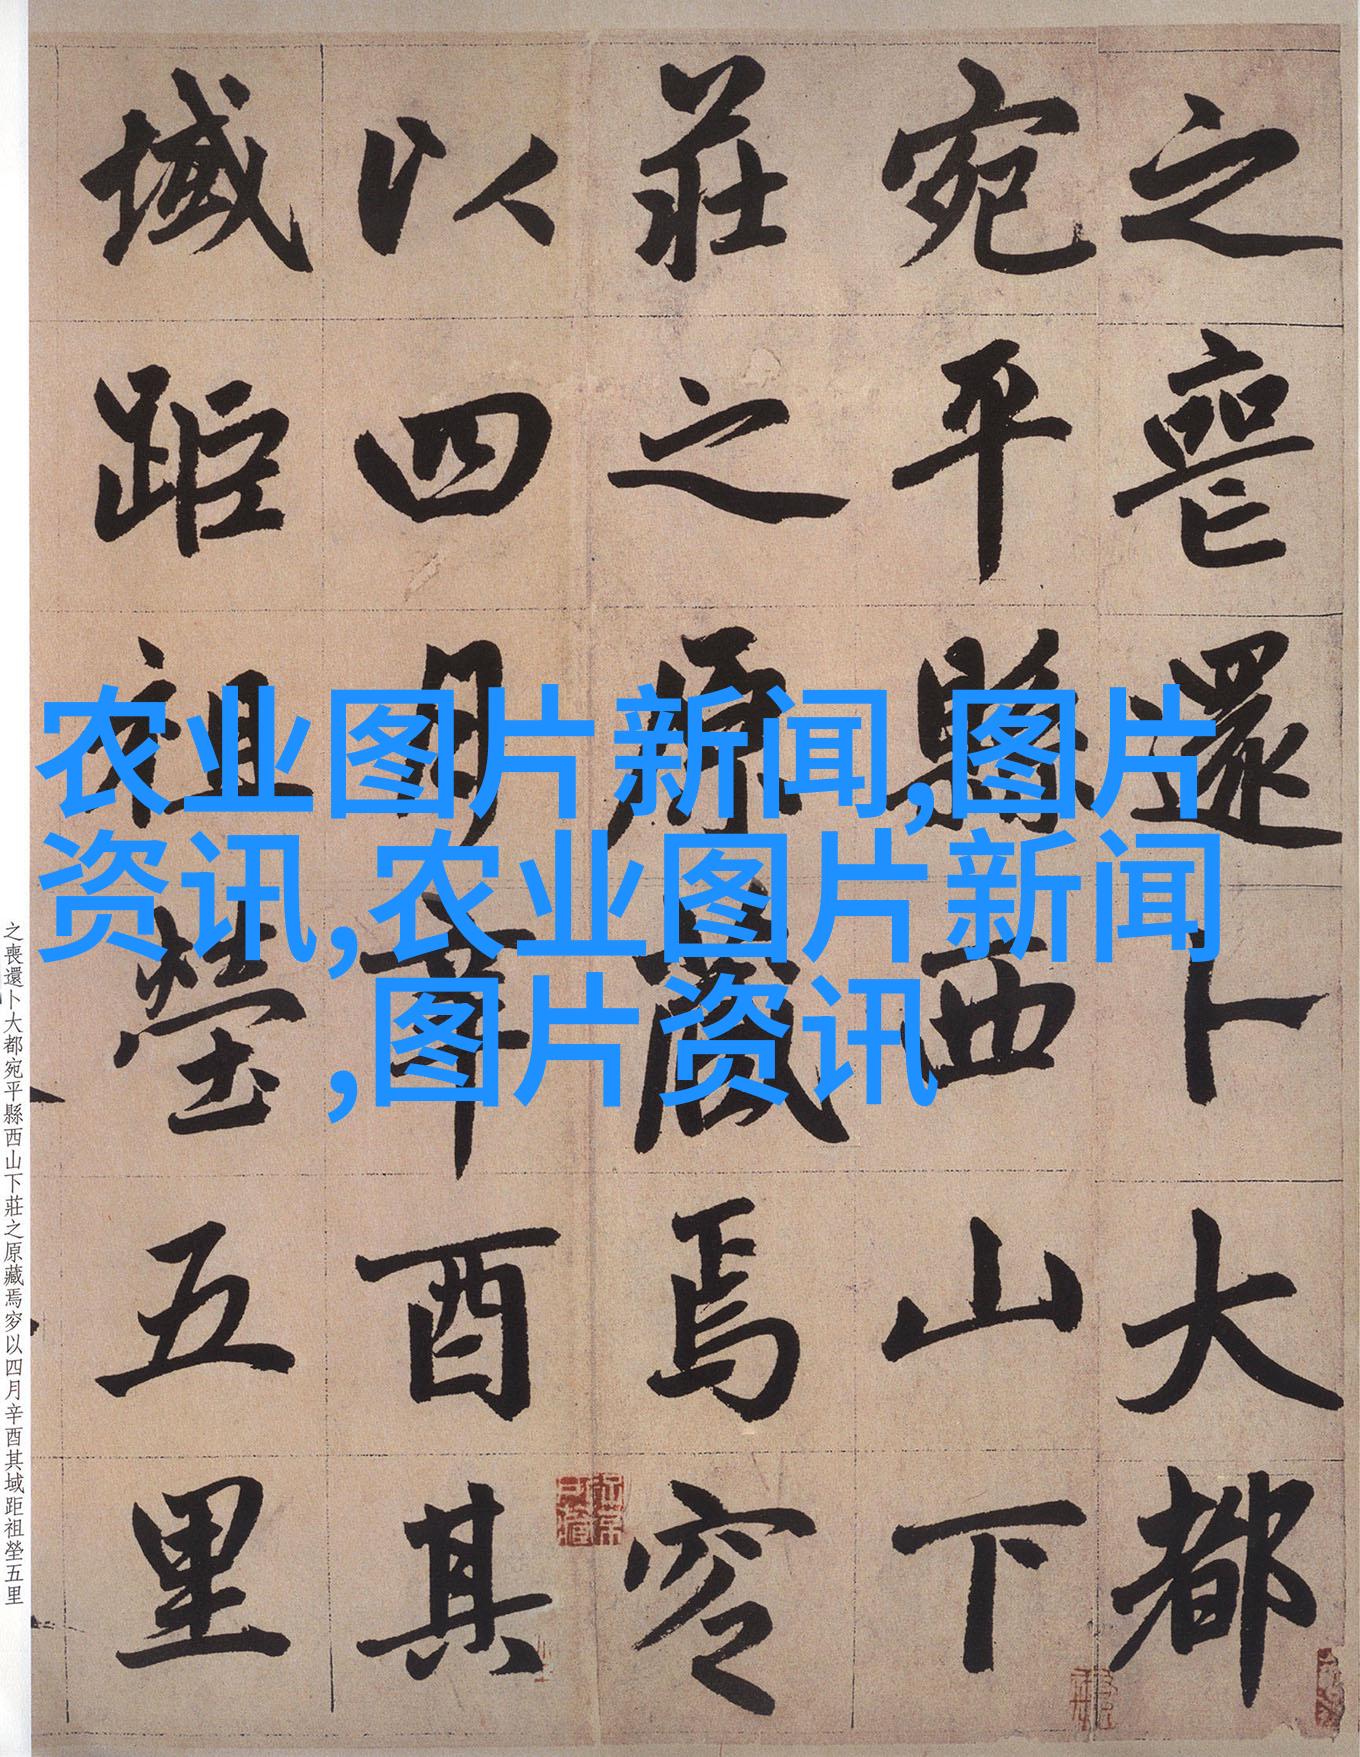 之喪還卜大都
宛平縣西山下
莊之原藏焉穸
以四月辛酉其
域距祖塋五里
农业图片新闻,图片
资讯,农业图片新闻
,图片资讯
之喪還卜大都宛平縣西山下莊之原藏焉穸以四月辛酉其域距祖塋五里